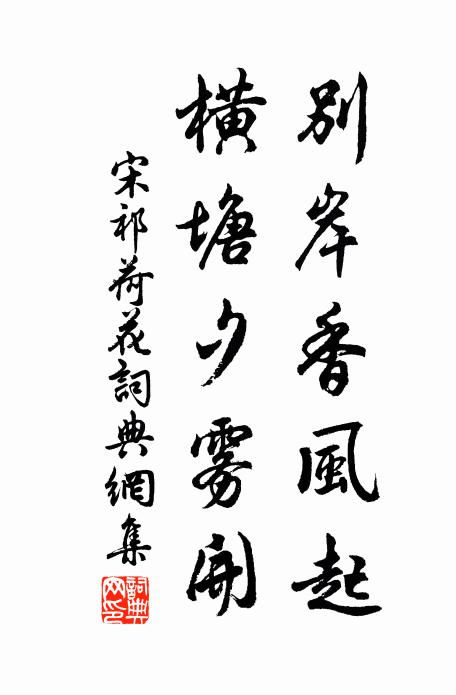 別岸香風起
橫塘夕霧開
宋祁荷花詞典網集
詞典
网印